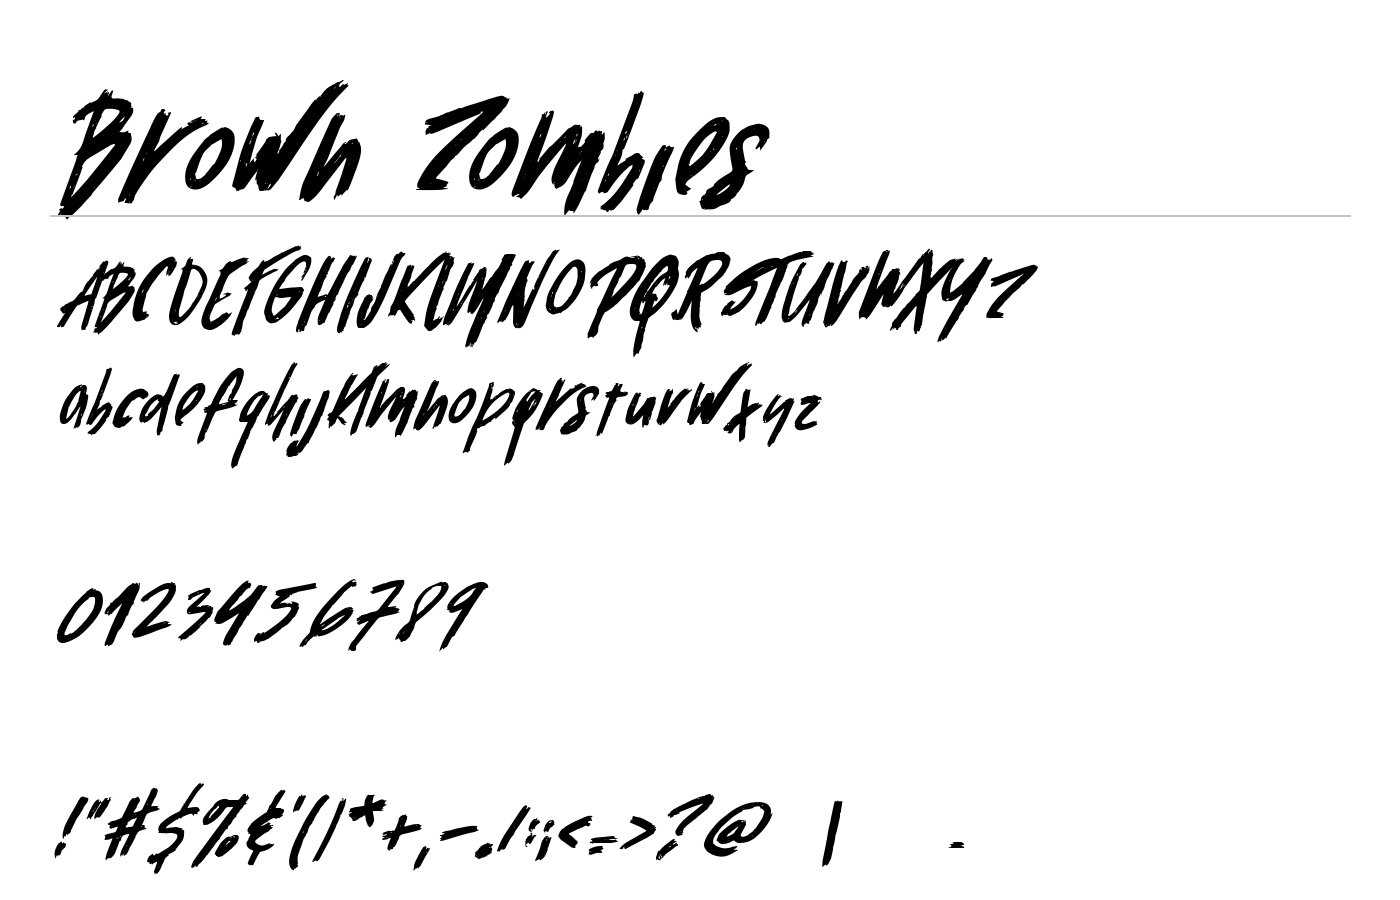 Brown Zombies
ABCDEFGHIJKLMNOPQRSTUVWXYZ
abcdefghijklmnopqrstuvwxyz
0123456789
!"#$%&'()*+,-./:;<=>?@ |